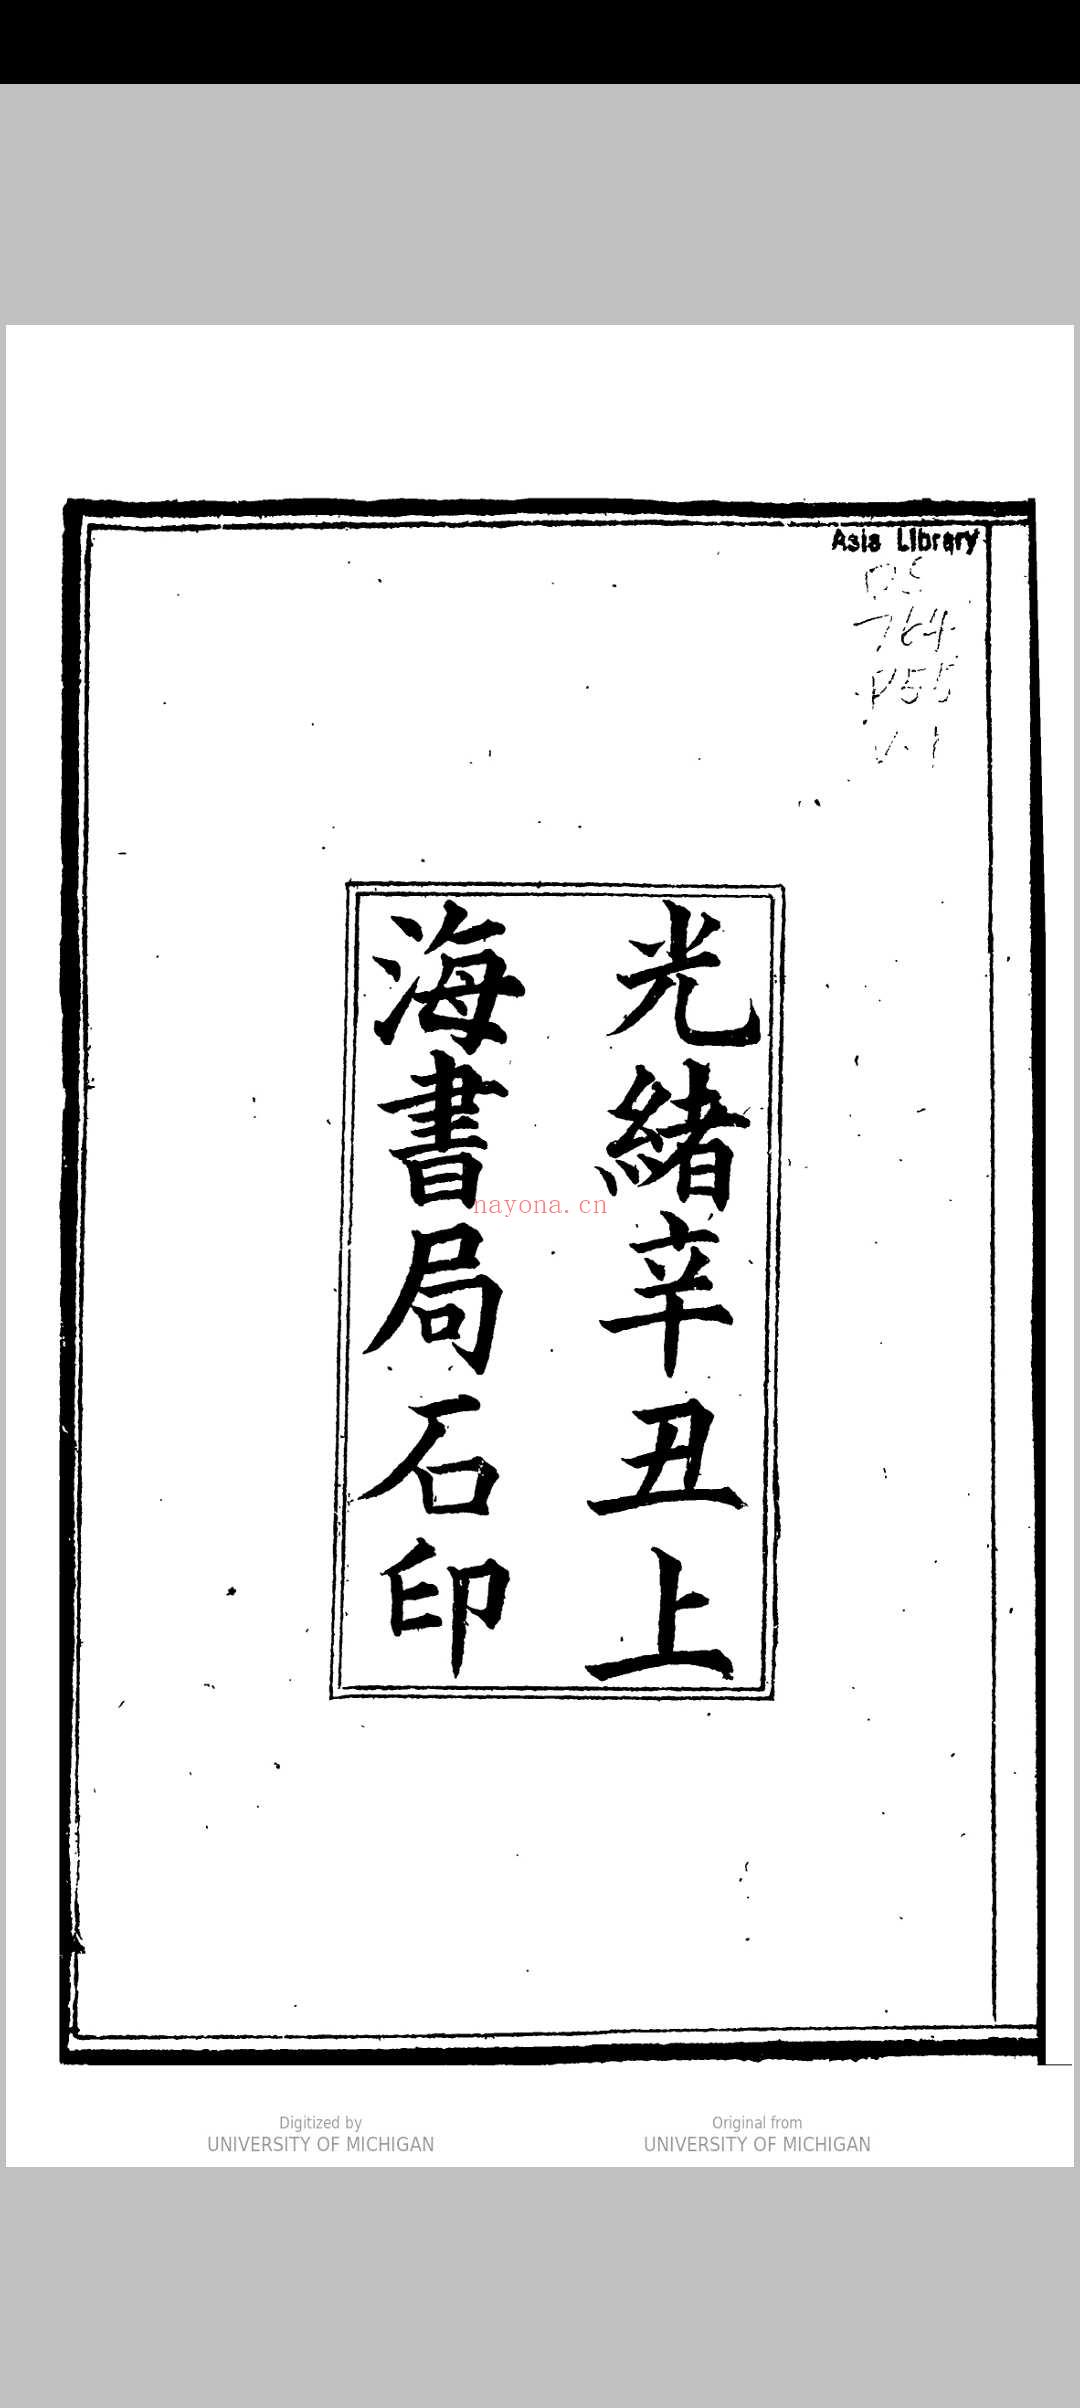 Asia Library
DS
764
P55
V.1
光緒辛丑上
海書局石印
nayona.cn
Digitized by
UNIVERSITY OF MICHIGAN
Original from
UNIVERSITY OF MICHIGAN